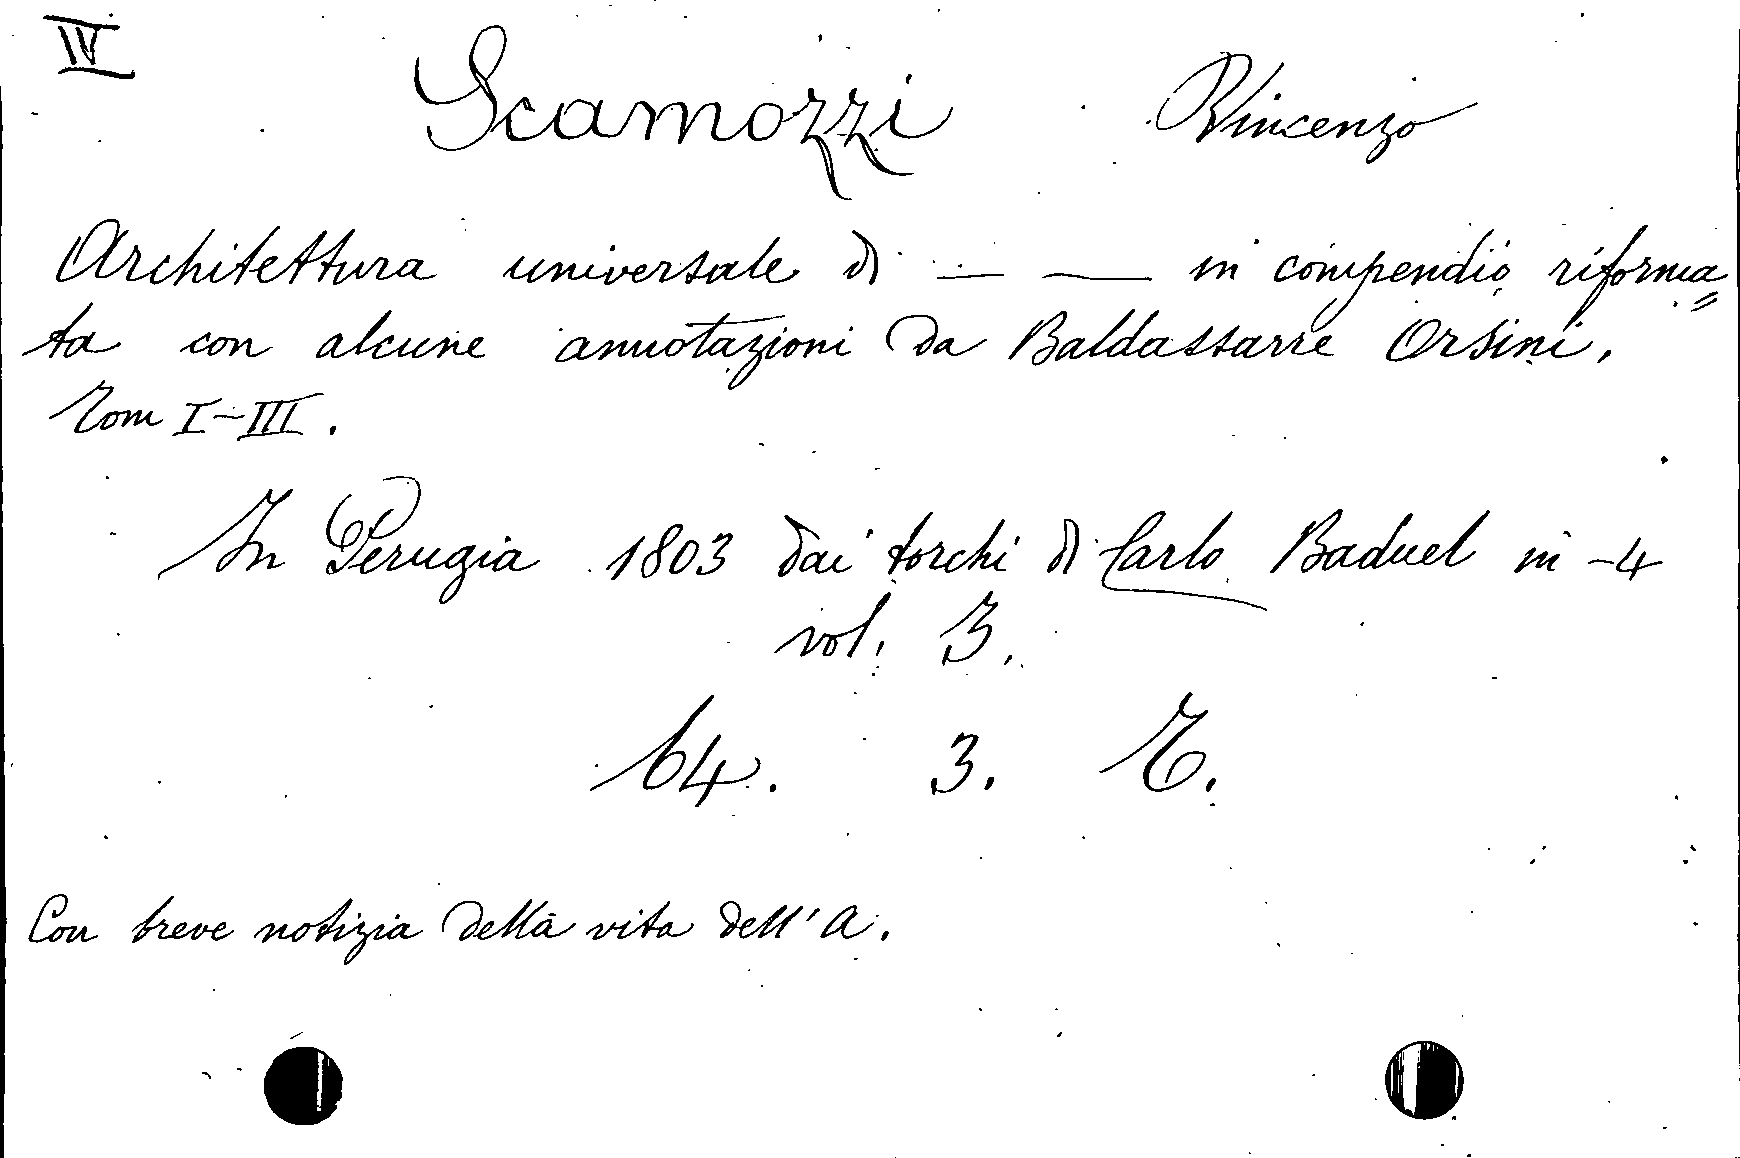 IV
Scamozzi Vincenzo
Architettura universale di — — in compendio riforma=
ta con alcune annotazioni da Baldassarre Orsini.
Tom I-III.
In Perugia 1803 dai torchi di Carlo Baduel in -4
vol. 3.
64. 3. T.
Con breve notizia della vita dell'A.